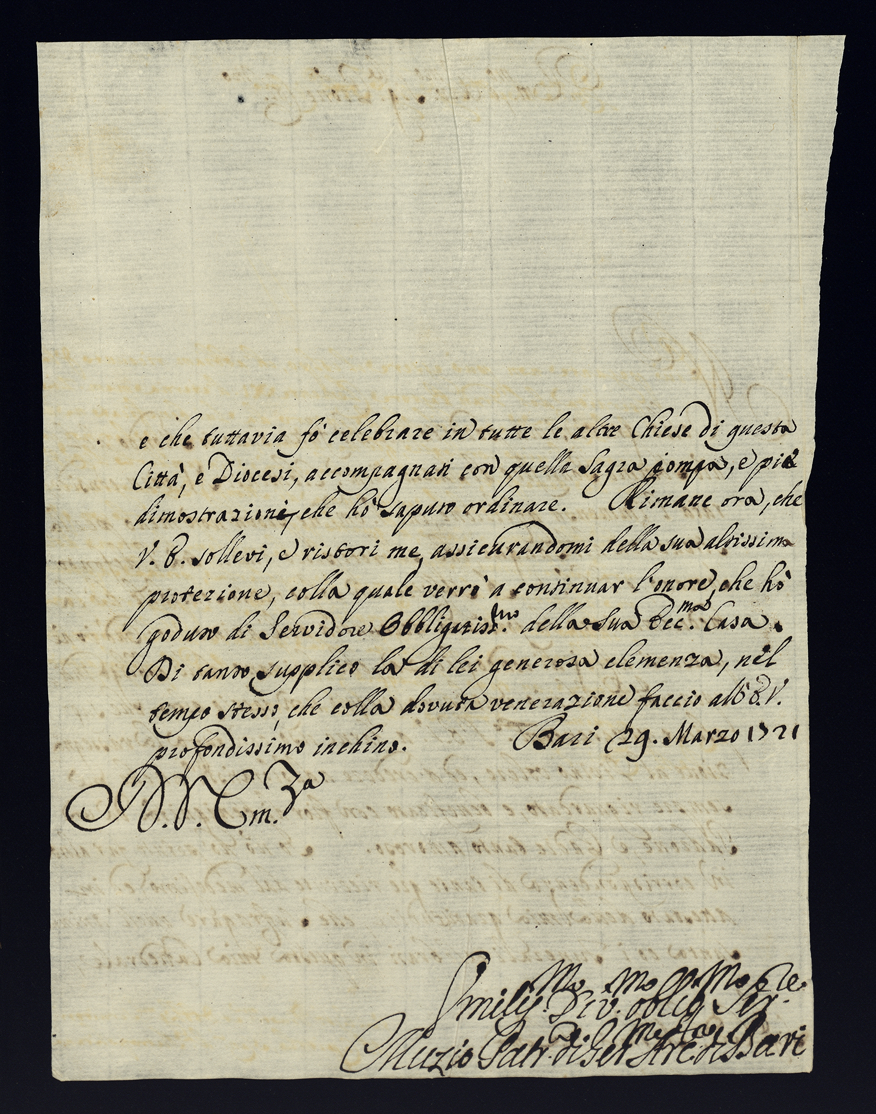 e che tuttavia fò celebrare in tutte le altre Chiese di questa
Città, e Diocesi, accompagnati con quella Sagra pompa, e più
dimostrazioni, che hò saputo ordinare. Rimane ora, che
V. E. sollevi, e ristori me, assicurandomi della sua altissima
protezione, colla quale verrò a continuar l'onore, che hò
goduto di Servidore Obbligatiss.mo della sua Ecc.ma Casa.
Di tanto supplico la di lei generosa clemenza, nel
tempo stesso, che colla dovuta venerazione faccio all'E. V.
profondissimo inchino. Bari 29. Marzo 1721
D. V. Em.za
Umiliss.mo Div.mo obblig.mo Ser.re
Muzio Patr. di Ger. Arc. di Bari